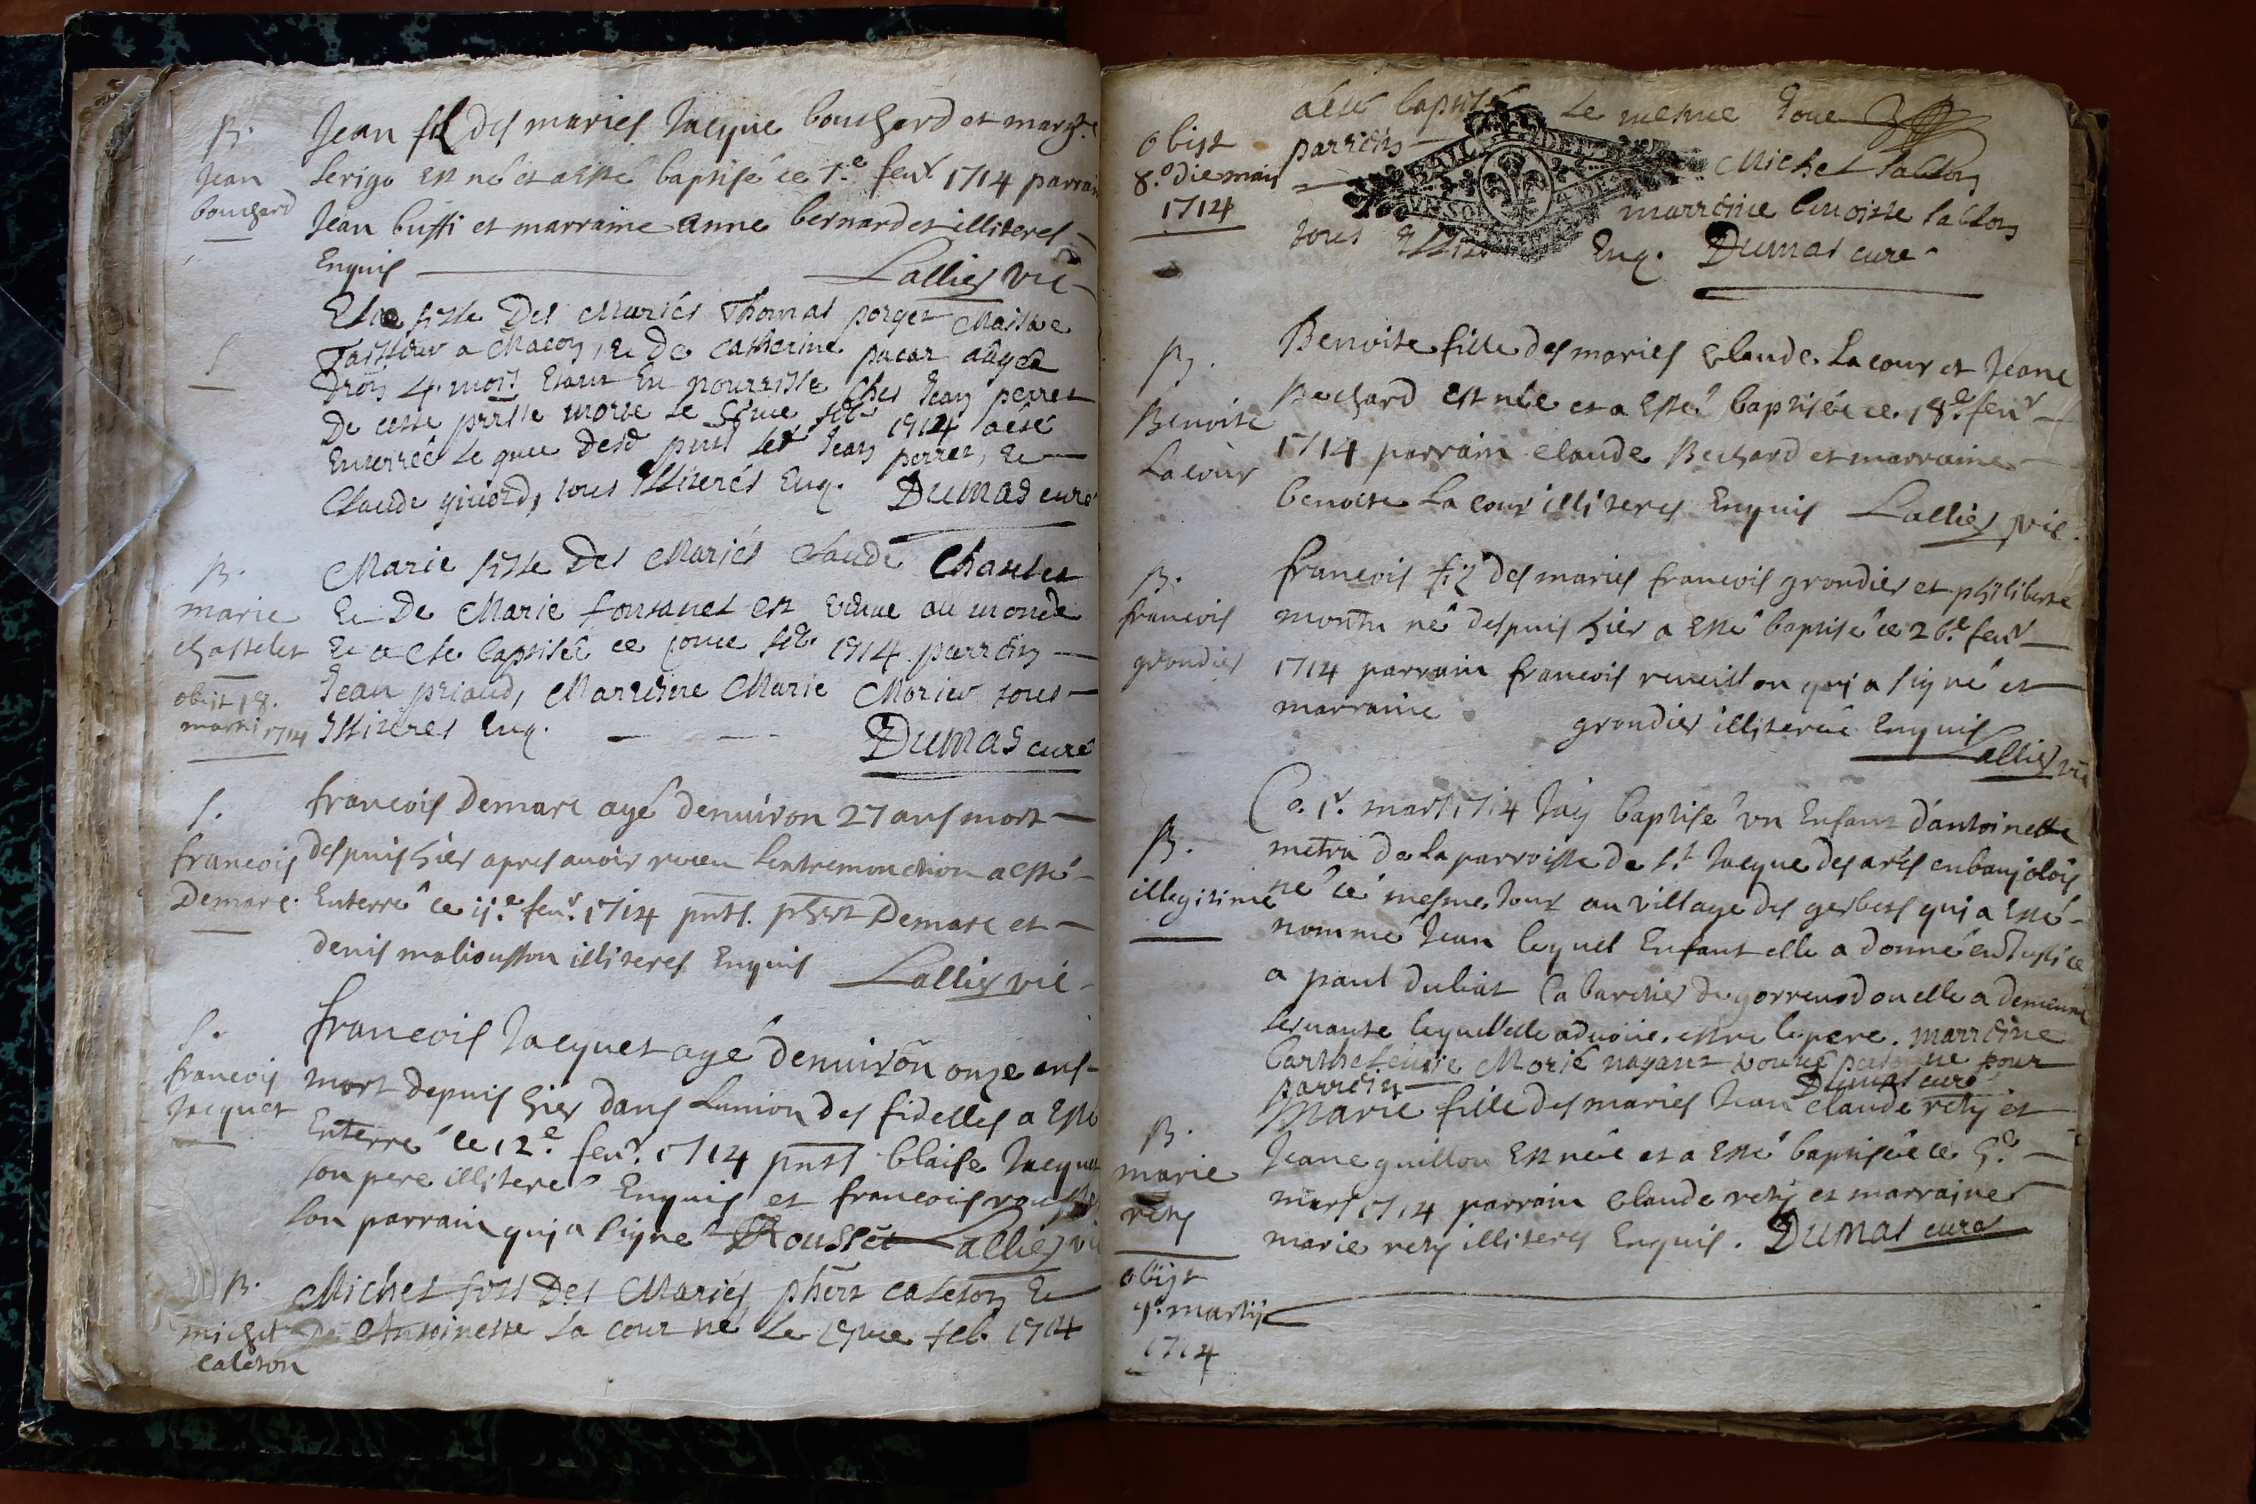 B.
Jean
bouchard
Jean fil des mariés Jacque bouchard et marg.te
Serigo est né et a esté baptisé ce 1.e feur 1714 parrain
Jean buffi et marraine anne bernardet illiteres
Enquis Lallier vic
S
fille Des Mariés Thomas porget Maistre
a Macon, & De Catherine agéa
Drois 4. mois Estant En nourrisse ches Jean perret
De cette prsse morte le 5me feb 1714 a été
Enterrée le 9me desd pnts led Jean perret, &
Claude givord, tous Illiterés Enq. Dumas curé
B.
marie
chasselet
obiit 18.
martii 1714
Marie fille Des Mariés Claude Chaselet
& De Marie fontanet est Venue au monde
& a esté baptisée ce feb 1714 parrein
Jean priaud, Marreine Marie Morier tous
Illiteres Enq.
Dumas curé
S.
francois
Demarc.
francois Demarc agé denuiron 27 ans mort
despuis hier apres auoir receu lextremonction a esté
Enterré ce 11.e feur. 1714 pnts. phbrt Demarc et
denis maliousson illiteres Enquis Lallier vic
S.
francois
Jacquet
francois Jacquet agé denuiron onze ans
mort depuis hier dans lunion des fidelles a esté
Enterré ce 12.e feur. 1714 pnts blaise Jacquet
son pere illiteré Enquis et francois rousset
son parrain qui a signé Rousset Lallier vic
B.
michel
caleton
Michel fils Des Mariés phbrt caleton &
De Antoinette La cour né Le 15me feb 1714
obiit
8.o die maii
1714
a été baptisé Le mesme Jour
parrein Michel Sablon
marreine benoiste Sablon
tous Illit Enq. Dumas curé
B.
Benoite
Lacour
Benoite fille des mariés Claude. La cour et Jeane
Bechard est née et a esté baptisée ce 18.e feur
1714 parrain Claude Bechard et marraine
benoite La cour illiteres Enquis Lallier vic.
B.
francois
grondier
francois fiz des mariés francois grondier et philiberte
montu né despuis hier a esté baptisé ce 26.e feur
1714 parrain francois reueillon qui a signé et
marraine grondier illiterée Enquis
Lallier vic
B.
illegitime
Ce. 1r. mars 1714 Jay baptisé vn Enfant dantoinette
metra de la parroisse de St Jacque des arés en baujolois
né ce mesme Jour au village des gerbets qui a esté
nommé Jean lequel Enfant elle a donné en Justice
a paul dubiat Cabartier de gorreuod ou elle a demeuré
seruante lequel elle aduoue. estre le pere. marreine
barthelemie Morié nayant voulu personne pour
parrein Dumas curé
B.
marie
rety
obiit
9.o martij
1714
Marie fille des mariés Jean Claude rety et
Jeane guillon est née et a esté baptisée ce 5.e
mars 1714 parrain Claude rety et marraine
marie rety illiteres Enquis. Dumas curé